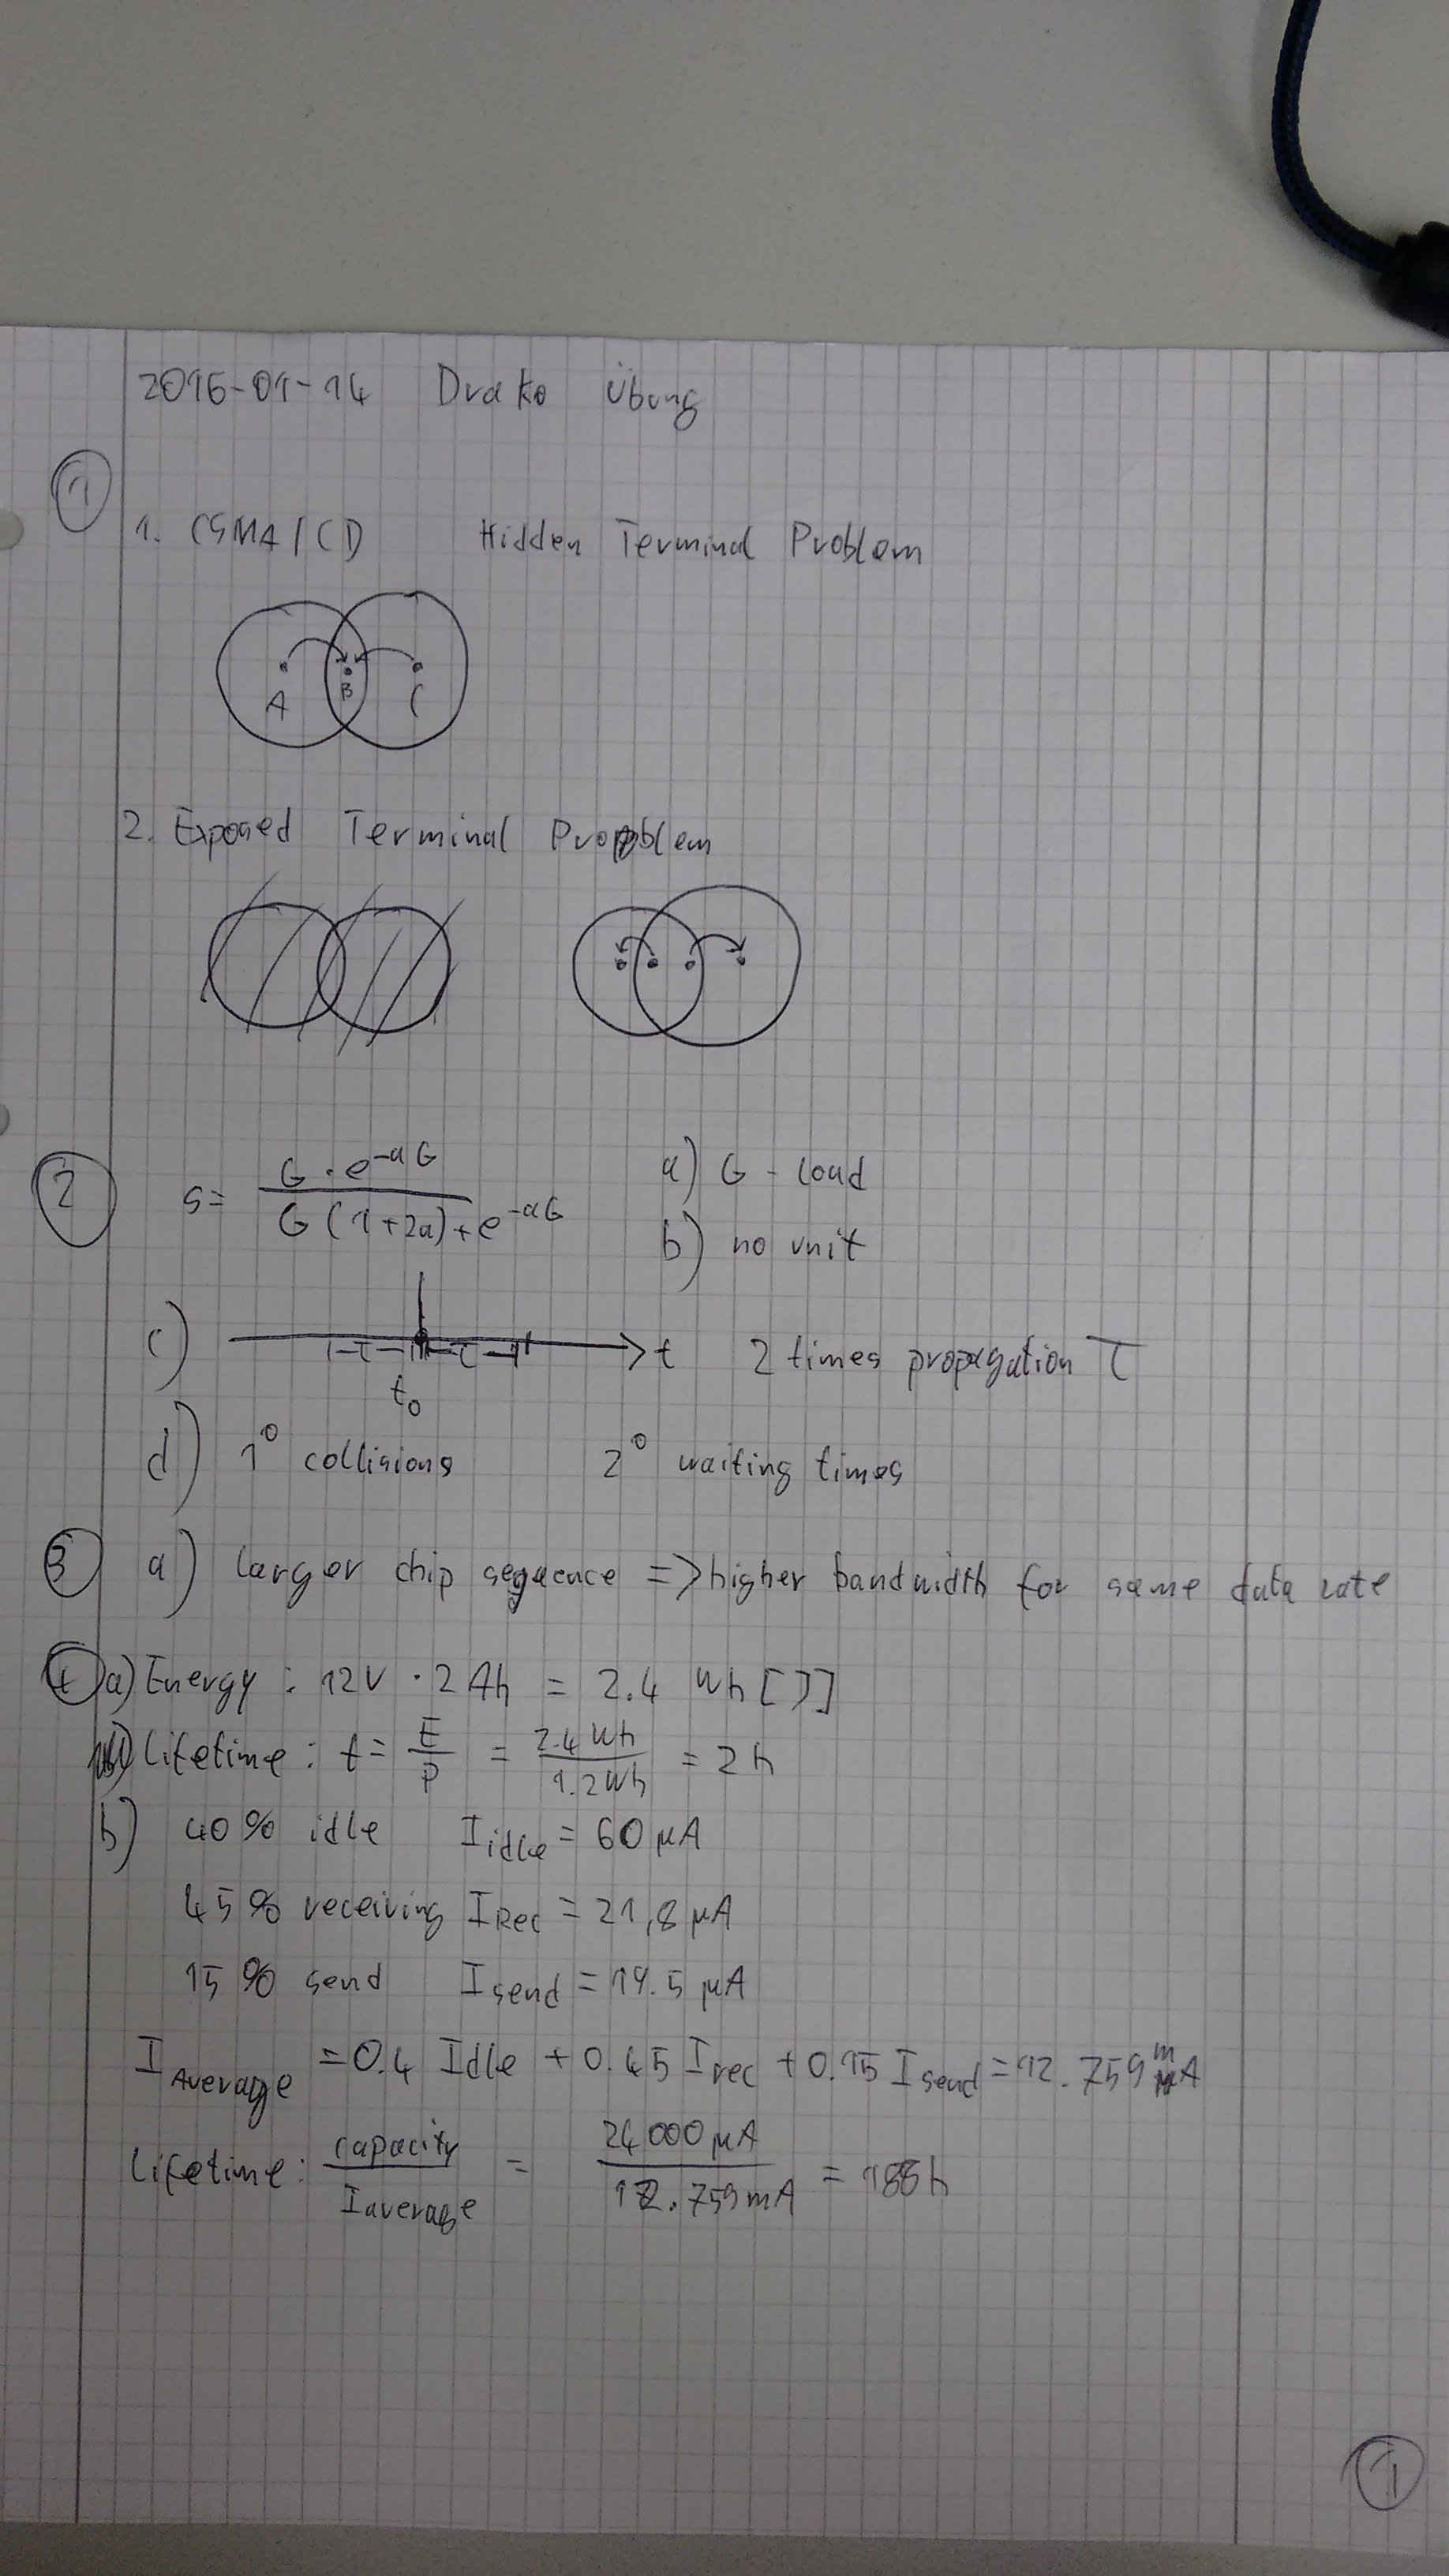 2016-01-14 Drako Übung
1
1. CSMA/CD Hidden Terminal Problem
A B C
2. Exposed Terminal Problem
2
S = G · e^-aG / G (1+2a) + e^-aG
a) G - Load
b) no unit
c) τ τ t 2 times propagation τ
t0
d) 1° collisions 2° waiting times
3 a) larger chip sequence => higher bandwidth for same data rate
4 a) Energy : 12V · 2 Ah = 2.4 Wh [J]
Lifetime : t = E/P = 2.4 Wh / 1.2 Wh = 2 h
b) 40% idle I idle = 60 µA
45% receiving I Rec = 21,8 µA
15% send I send = 19.5 µA
I Average = 0.4 Idle + 0.45 I rec + 0.15 I send = 12.759 mA
Lifetime : capacity / I average = 24000 µA / 12.759 mA = 188 h
1